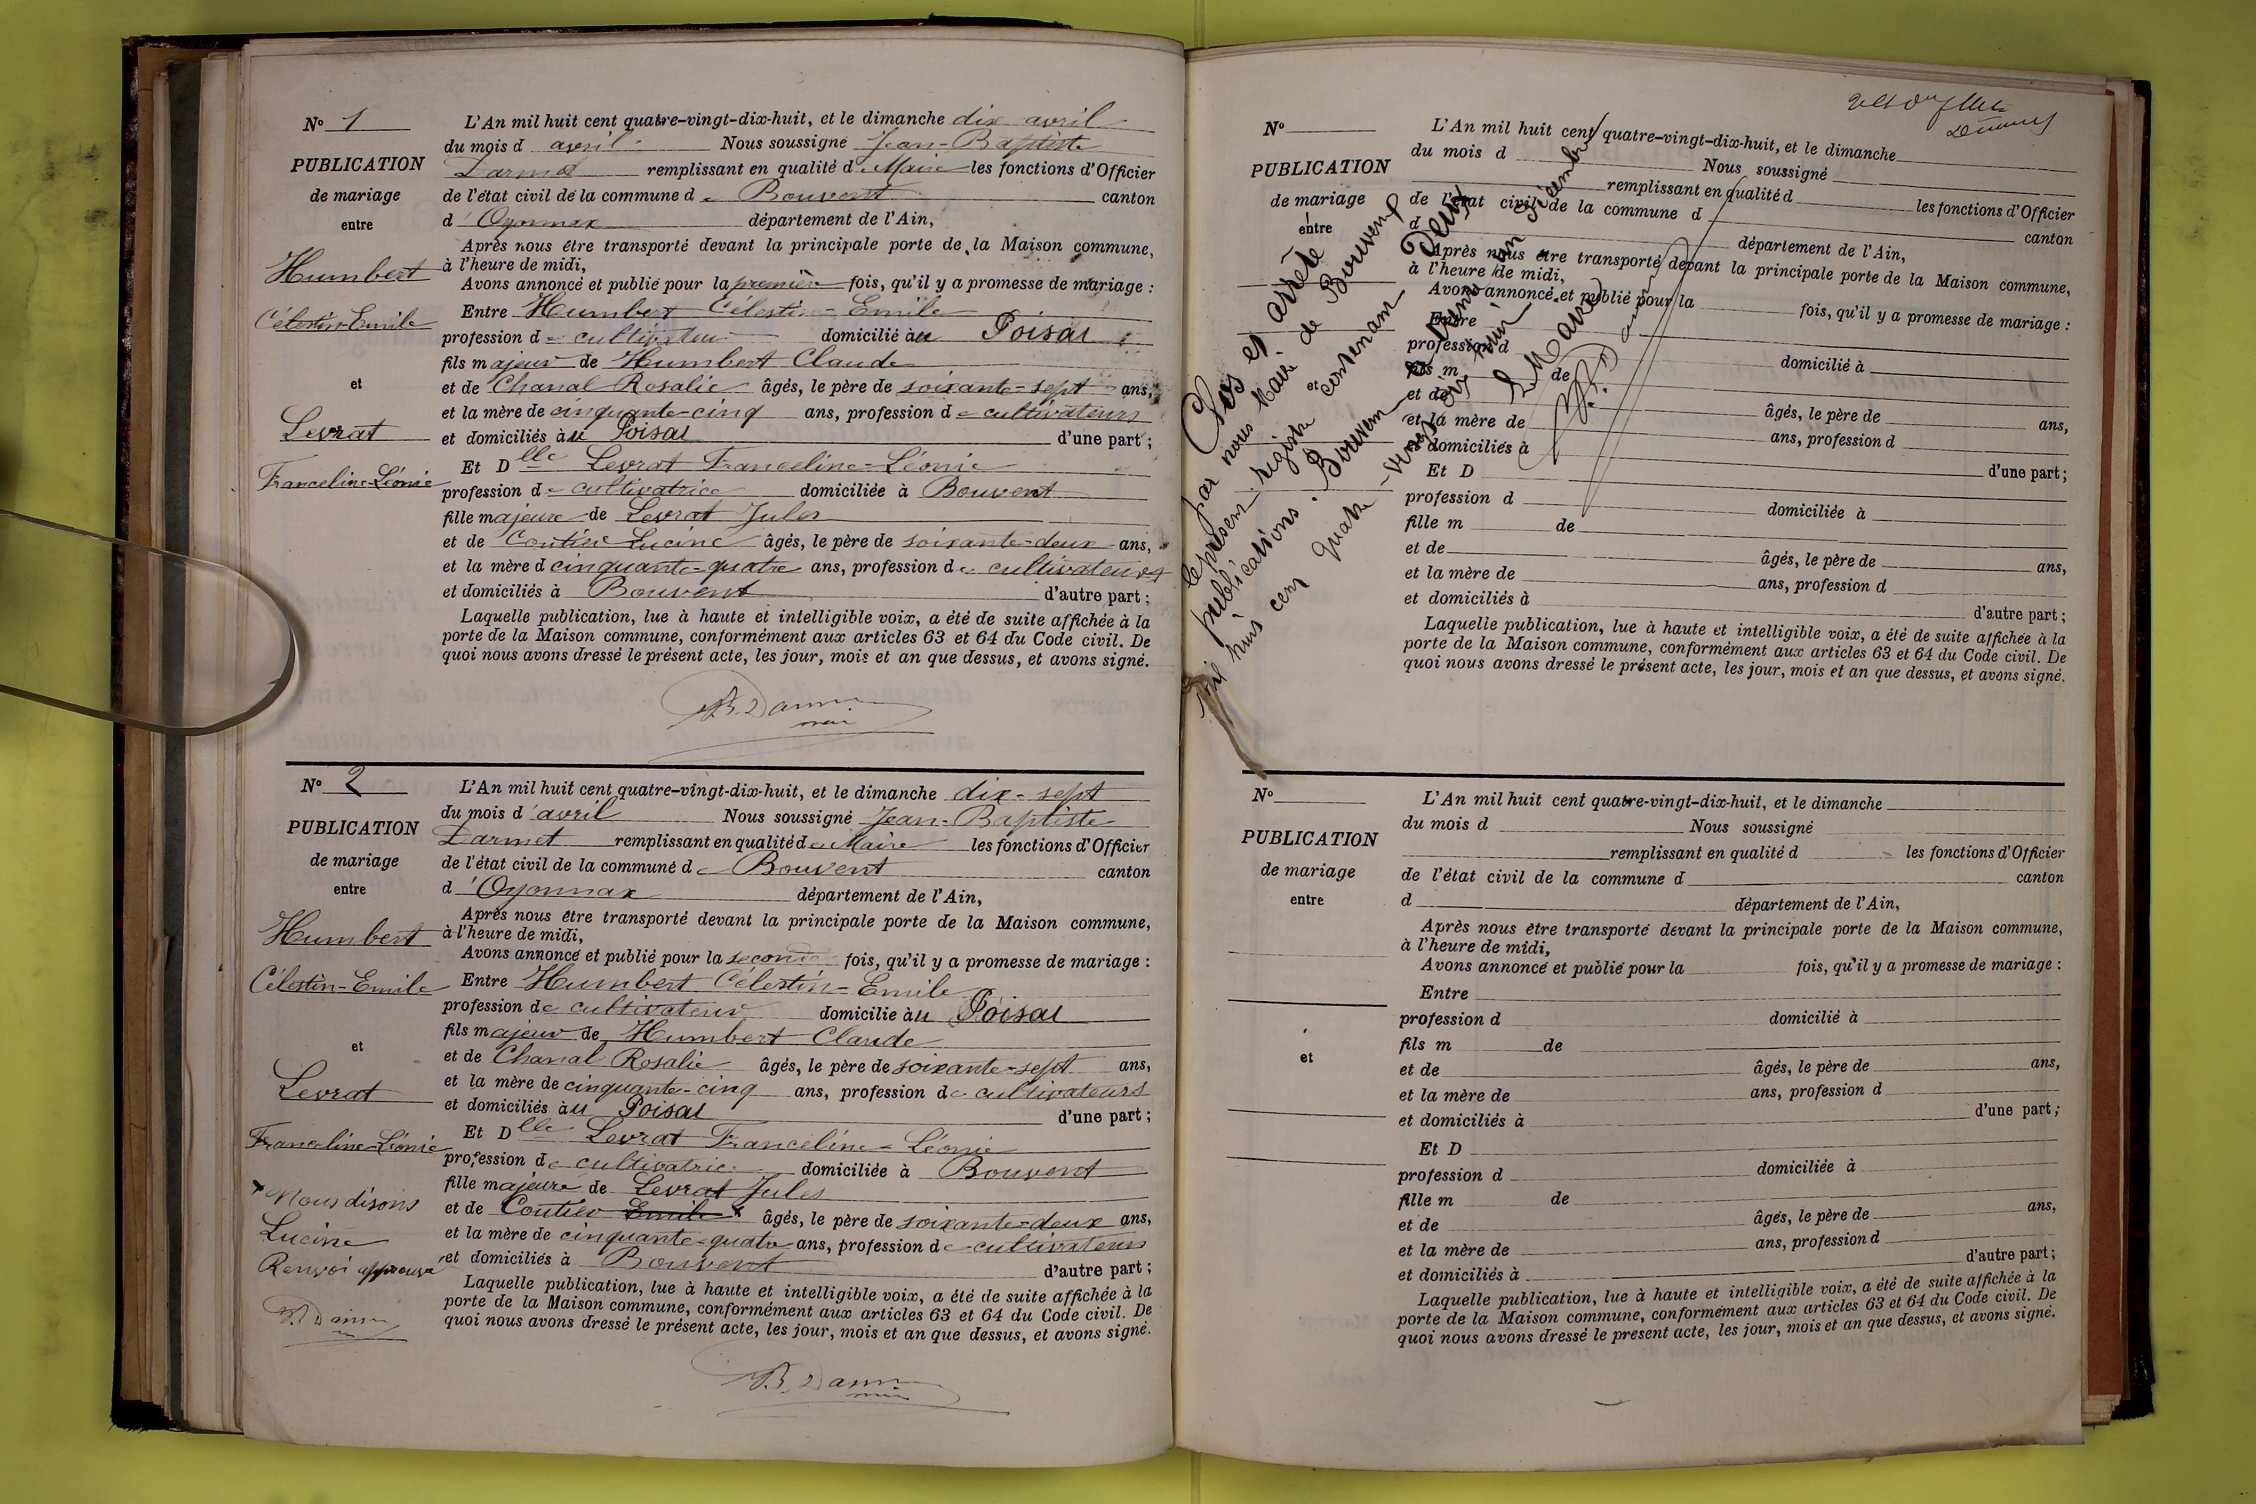 N° 1
PUBLICATION
de mariage
entre
Humbert
Célestin-Emile
et
Levrat
Franceline-Léonie
L'An mil huit cent quatre-vingt-dix-huit, et le dimanche dix avril
du mois d avril Nous soussigné Jean-Baptiste
Darmet remplissant en qualité de Maire les fonctions d'Officier
de l'état civil de la commune de Bouvent canton
d'Oyonnax département de l'Ain,
Après nous être transporté devant la principale porte de la Maison commune,
à l'heure de midi,
Avons annoncé et publié pour la première fois, qu'il y a promesse de mariage :
Entre Humbert Célestin-Emile
profession de cultivateur domicilié au Poisat
fils majeur de Humbert Claude
et de Chanal Rosalie âgés, le père de soixante-sept ans,
et la mère de cinquante-cinq ans, profession de cultivateurs
et domiciliés au Poisat d'une part ;
Et Dlle Levrat Franceline-Léonie
profession de cultivatrice domiciliée à Bouvent
fille majeure de Levrat Jules
et de Coutier Lucine âgés, le père de soixante-deux ans,
et la mère d cinquante-quatre ans, profession de cultivateurs
et domiciliés à Bouvent d'autre part ;
Laquelle publication, lue à haute et intelligible voix, a été de suite affichée à la
porte de la Maison commune, conformément aux articles 63 et 64 du Code civil. De
quoi nous avons dressé le présent acte, les jour, mois et an que dessus, et avons signé.
N° 2
PUBLICATION
de mariage
entre
Humbert
Célestin-Emile
et
Levrat
Franceline-Léonie
Nous disons
Lucine
Renvoi approuvé
L'An mil huit cent quatre-vingt-dix-huit, et le dimanche dix-sept
du mois d'avril Nous soussigné Jean-Baptiste
Darmet remplissant en qualité de Maire les fonctions d'Officier
de l'état civil de la commune de Bouvent canton
d'Oyonnax département de l'Ain,
Après nous être transporté devant la principale porte de la Maison commune,
à l'heure de midi,
Avons annoncé et publié pour la seconde fois, qu'il y a promesse de mariage :
Entre Humbert Célestin-Emile
profession de cultivateur domicilié au Poisat
fils majeur de Humbert Claude
et de Chanal Rosalie âgés, le père de soixante-sept ans,
et la mère de cinquante-cinq ans, profession de cultivateurs
et domiciliés au Poisat d'une part ;
Et Dlle Levrat Franceline-Léonie
profession de cultivatrice domiciliée à Bouvent
fille majeure de Levrat Jules
et de Coutier Emile âgés, le père de soixante-deux ans,
et la mère de cinquante-quatre ans, profession de cultivateurs
et domiciliés à Bouvent d'autre part ;
Laquelle publication, lue à haute et intelligible voix, a été de suite affichée à la
porte de la Maison commune, conformément aux articles 63 et 64 du Code civil. De
quoi nous avons dressé le présent acte, les jour, mois et an que dessus, et avons signé.
N°
PUBLICATION
de mariage
entre
et
L'An mil huit cent quatre-vingt-dix-huit, et le dimanche
du mois d Nous soussigné
remplissant en qualité d les fonctions d'Officier
de l'état civil de la commune d canton
d département de l'Ain,
Après nous être transporté devant la principale porte de la Maison commune,
à l'heure de midi,
Avons annoncé et publié pour la fois, qu'il y a promesse de mariage :
Entre
profession d domicilié à
fils m de
et de âgés, le père de ans,
et la mère de ans, profession d
et domiciliés à d'une part ;
Et D
profession d domiciliée à
fille m de
et de âgés, le père de ans,
et la mère de ans, profession d
et domiciliés à d'autre part ;
Laquelle publication, lue à haute et intelligible voix, a été de suite affichée à la
porte de la Maison commune, conformément aux articles 63 et 64 du Code civil. De
quoi nous avons dressé le présent acte, les jour, mois et an que dessus, et avons signé.
Clos et arrêté
par nous Maire de Bouvent
le présent registre contenant Deux
publications. Bouvent le trente un Décembre
mil huit cent quatre-vingt dix huit
Le Maire
N°
PUBLICATION
de mariage
entre
et
L'An mil huit cent quatre-vingt-dix-huit, et le dimanche
du mois d Nous soussigné
remplissant en qualité d les fonctions d'Officier
de l'état civil de la commune d canton
d département de l'Ain,
Après nous être transporté devant la principale porte de la Maison commune,
à l'heure de midi,
Avons annoncé et publié pour la fois, qu'il y a promesse de mariage :
Entre
profession d domicilié à
fils m de
et de âgés, le père de ans,
et la mère de ans, profession d
et domiciliés à d'une part ;
Et D
profession d domiciliée à
fille m de
et de âgés, le père de ans,
et la mère de ans, profession d
et domiciliés à d'autre part ;
Laquelle publication, lue à haute et intelligible voix, a été de suite affichée à la
porte de la Maison commune, conformément aux articles 63 et 64 du Code civil. De
quoi nous avons dressé le présent acte, les jour, mois et an que dessus, et avons signé.